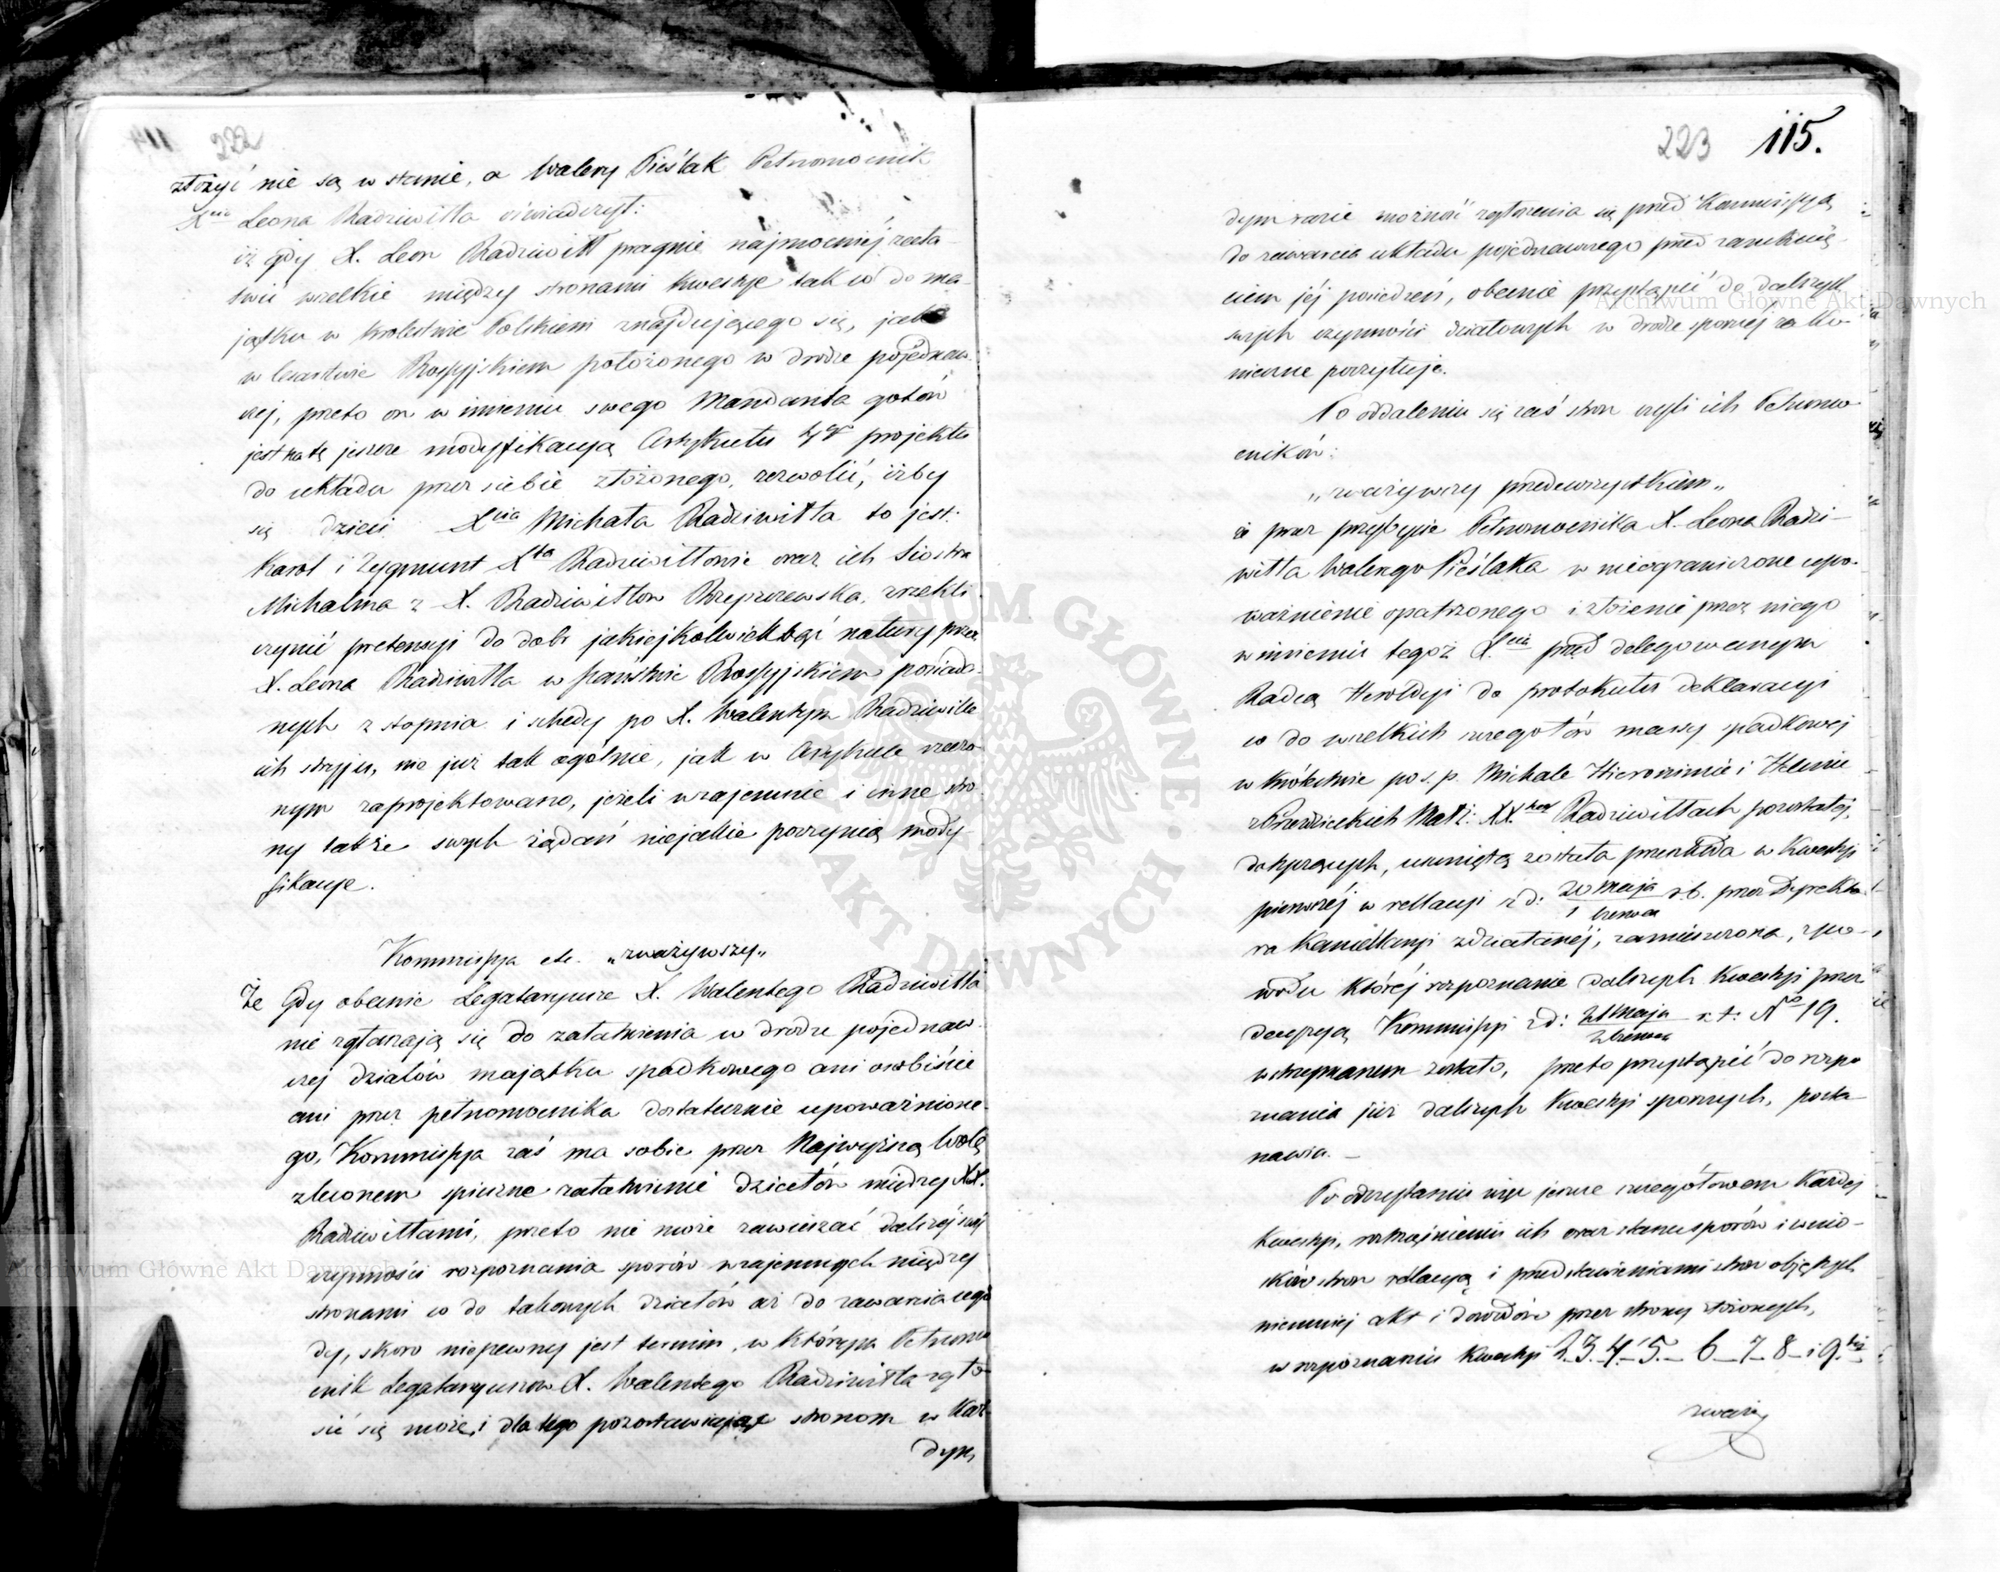 222
złożyć nie są w stanie, a Walery Pieślak Pełnomocnik
Xcia Leona Radziwiłła oświadczył:
iż gdy X. Leon Radziwiłł pragnie najmocniej zała-
twić wszelkie między stronami kwestye tak co do ma-
jątku w Królestwie Polskiem znajdującego się, jako
w Cesarstwie Rossyjskiem położonego w drodze pojednaw-
czej, przeto on w imieniu swego Mandanta gotów
jest na tę jeszcze modyfikacyą Artykułu projektu
do układu przez siebie złożonego, zezwolić, iżby
się dzieci Xcia Michała Radziwiłła to jest:
Karol i Zygmunt Xta Radziwiłłowie oraz ich Siostra
Michalina z X. Radziwiłłów Rzepszewska, zrzekli
czynić pretensyi do dóbr jakiejkolwiek bądź natury przez
X. Leona Radziwiłła w państwie Rossyjskiem posiada-
nych z stopnia i schedy po X. Walentym Radziwille
ich stryju, nie już tak ogólnie, jak w Artykule rzeczo-
nym zaprojektowano, jeżeli wzajemnie i inne stro-
ny także swych żądań niejakie poczynią mody-
fikacye.
Kommissya etc. „zważywszy„
Że Gdy obecnie Legataryusze X. Walentego Radziwiłła
nie zgłaszają się do załatwienia w drodze pojednaw-
czej działów majątku spadkowego ani osobiście
ani przez pełnomocnika dostatecznie upoważnione-
go, Kommissya zaś ma sobie przez Najwyższą Wolę
zleconem spieszne załatwienie działów między XX.
Radziwiłłami, przeto nie może zawieszać dalszéj swéj
czynności rozpoznania sporów wzajemnych między
stronami co do takowych działów aż do zawarcia ugo
dy, skoro niepewny jest termin, w którym Pełnomo
cnik Legataryuszów X. Walentego Radziwiłła zgło-
sić się może, i dla tego pozostawiając stronom w każ-
dym
223 115.
dym razie możność zgłoszenia się przed Kommissyą
do zawarcia układu pojednawczego przed zamknię-
ciem jéj posiedzeń, obecnie przystąpić do dalszych
swych czynności działowych w drodze spornéj za ko-
nieczne poczytuje.
Po oddaleniu się zaś stron czyli ich Pełnomo
cników:
„zważywszy przedewszystkiem„
iż przez przybycie Pełnomocnika X. Leona Radzi-
wiłła Walerego Pieślaka w nieograniczone upo-
ważnienie opatrzonego i złożenie przez niego
w imieniu tegoż Xcia przed delegowanym
Radcą Heroldyi do protokułu deklaracyi
co do wszelkich szczegółów massy spadkowej
w Królestwie po ś. p. Michale Hieronimie i Helenie
z Przezdzieckich Małż: XX. Radziwiłłach pozostałej,
dotyczących, usuniętą została przeszkoda w Kwestyi
pierwszéj w rellacyi z d: 20 Maja / 1 Czerwca r.b. przez Dyrekto
ra Kancellaryi zdziałanéj, zamieszczona, z po-
wodu któréj rozpoznanie dalszych kwestyi przez
decyzyą Kommissyi z d: 21 Maja / 2 Czerwca r.t. No 19.
wstrzymanem zostało, przeto przystąpić do rozpo
znania już dalszych kwestyi spornych, posta-
nawia. –
Po odczytaniu więc jeszcze szczegółowem każdej
kwestyi, roztrząśnieniu ich oraz stanu sporów i wnio-
sków stron rellacyą i przedstawieniami stron objętych
niemniej akt i dowodów przez strony złożonych,
w rozpoznaniu kwestyi 2. 3. 4. 5. – 6 – 7 – 8 – i 9téj
zważy
Archiwum Główne Akt Dawnych
Archiwum Główne Akt Dawnych
ARCHIWUM GŁÓWNE AKT DAWNYCH